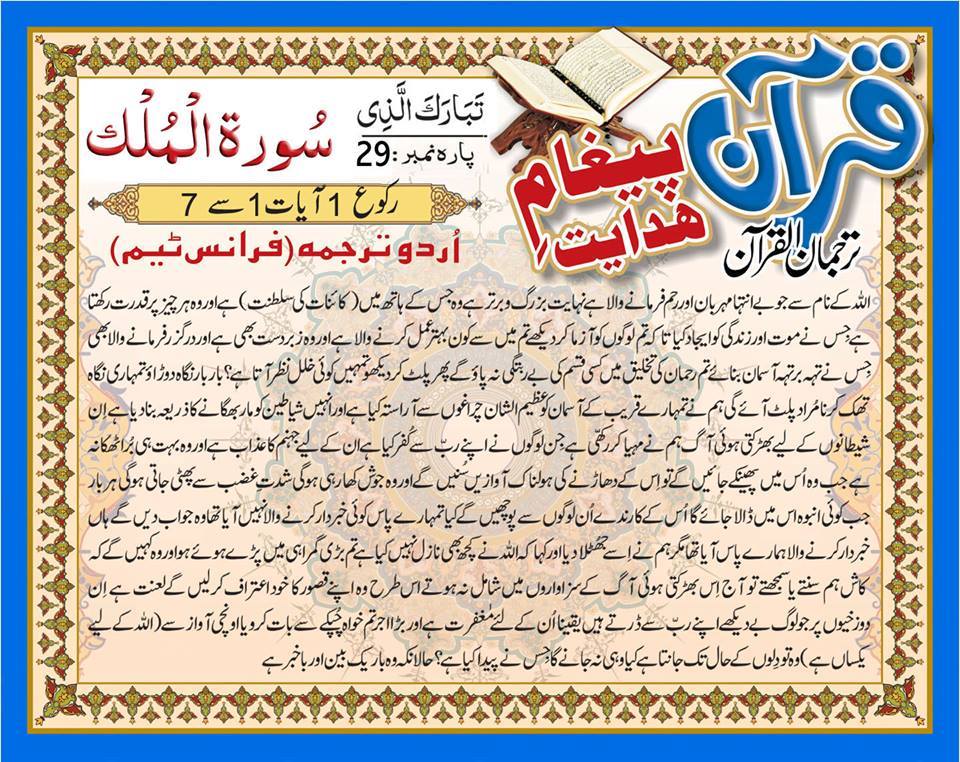 قرآن
پیغامِ
ھدایت
ترجمان القرآن
تَبَارَكَ الَّذِی
پارہ نمبر: 29
سُورۃ الْمُلْك
رکوع 1 آیات 1 سے 7
اُردو ترجمہ (فرانس ٹیم)
اللہ کے نام سے جو بے انتہا مہربان اور رحم فرمانے والا ہے نہایت بزرگ و برتر ہے وہ جس کے ہاتھ میں (کائنات کی سلطنت) ہے اور وہ ہر چیز پر قدرت رکھتا
ہے جس نے موت اور زندگی کو ایجاد کیا تاکہ تم لوگوں کو آزما کر دیکھے تم میں سے کون بہتر عمل کرنے والا ہے اور وہ زبردست بھی ہے اور درگزر فرمانے والا بھی
جس نے تہہ بر تہہ آسمان بنائے تم رحمان کی تخلیق میں کسی قسم کی بے ربتگی نہ پاؤ گے پھر پلٹ کر دیکھو تمہیں کوئی خلل نظر آتا ہے؟ بار بار نگاہ دوڑاؤ تمہاری نگاہ
تھک کر نامُراد پلٹ آئے گی ہم نے تمہارے قریب کے آسمان کو عظیم الشان چراغوں سے آراستہ کیا ہے اور انہیں شیاطین کو مار بھگانے کا ذریعہ بنا دیا ہے اِن
شیطانوں کے لیے بھڑکتی ہوئی آگ ہم نے مہیا کر رکھی ہے جن لوگوں نے اپنے ربّ سے کُفر کیا ہے ان کے لیے جہنم کا عذاب ہے اور وہ بہت ہی بُرا ٹھکانہ
ہے جب وہ اس میں پھینکے جائیں گے تو اِس کے دھاڑنے کی ہولناک آوازیں سُنیں گے اور وہ جوش کھا رہی ہوگی شدت غضب سے پھٹی جاتی ہوگی ہر بار
جب کوئی انبوہ اس میں ڈالا جائے گا اُس کے کارندے اُن لوگوں سے پوچھیں گے کیا تمہارے پاس کوئی خبردار کرنے والا نہیں آیا تھا وہ جواب دیں گے ہاں
خبردار کرنے والا ہمارے پاس آیا تھا مگر ہم نے اسے جھٹلا دیا اور کہا کہ اللہ نے کچھ بھی نازل نہیں کیا ہے تم بڑی گمراہی میں پڑے ہوئے ہو اور وہ کہیں گے کہ
کاش ہم سنتے یا سمجھتے تو آج اِس بھڑکتی ہوئی آگ کے سزاواروں میں شامل نہ ہوتے اس طرح وہ اپنے قصور کا خود اعتراف کرلیں گے لعنت ہے اِن
دوزخیوں پر جو لوگ بے دیکھے اپنے ربّ سے ڈرتے ہیں یقینا اُن کے لئے مُغفرت ہے اور بڑا اجر تم خواہ چُپکے سے بات کرو یا اونچی آواز سے (اللہ کے لیے
یکساں ہے) وہ تو دِلوں کے حال تک جانتا ہے کیا وہی نہ جانے گا جس نے پیدا کیا ہے؟ حالانکہ وہ باریک بین اور باخبر ہے